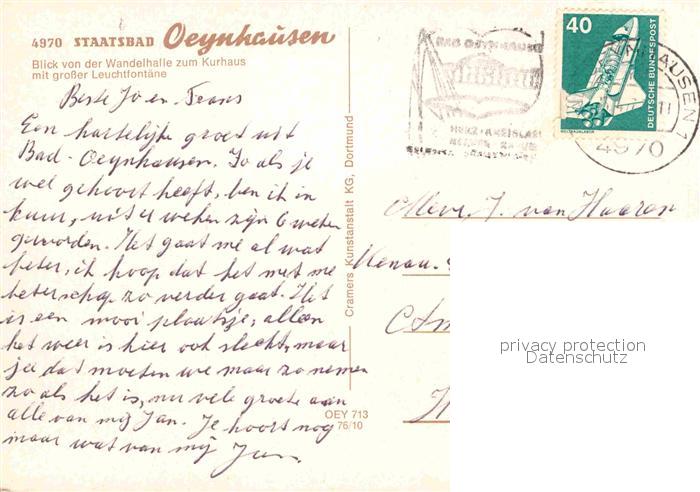 4970 STAATSBAD Oeynhausen
Blick von der Wandelhalle zum Kurhaus
mit großer Leuchtfontäne
Beste Jo en Frans
Een hartelijke groet uit
Bad-Oeynhausen. Jo als je
wel gehoort heeft, ben ik in
kuur, uit 4 weken zijn 6 weken
geworden. Het gaat me al wat
beter, ik hoop dat het met me
beterschap zo verder gaat. Het
is een mooi plaatsje, alleen
het weer is hier ook slecht, maar
ja dat moeten we maar zo nemen
zo als het is, nu vele groete aan
alle van mij Jan. Je hoort nog
maar wat van mij
OEY 713
76/10
Cramers Kunstanstalt KG, Dortmund
BAD OEYNHAUSEN
40
DEUTSCHE BUNDESPOST
HAUSEN 1
4970
Mevr. J. van Haaren
Kenau
privacy protection
Datenschutz